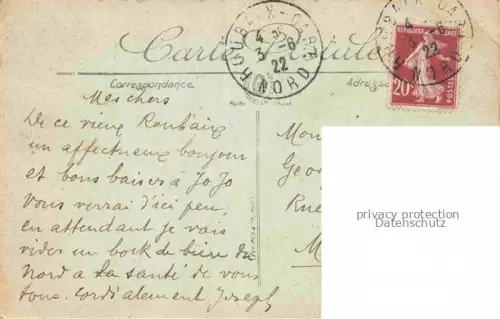 Carte Postale
ROUBAIX-GARE
4 5
3 -6
22
NORD
ROUBAIX-GARE
4
3 -6
22
NORD
REPUBLIQUE FRANÇAISE
20c
POSTES
Correspondance
Adresse
Mes chers
De ce vieux Roubaix
un affectueux bonjour
et bons baisers à JoJo
Vous verrai d'ici peu,
en attendant je vais
vider un bock de bière du
Nord a la santé de vous
tous. Cordialement Joseph
Mon
Geor
Rue
M
privacy protection
Datenschutz